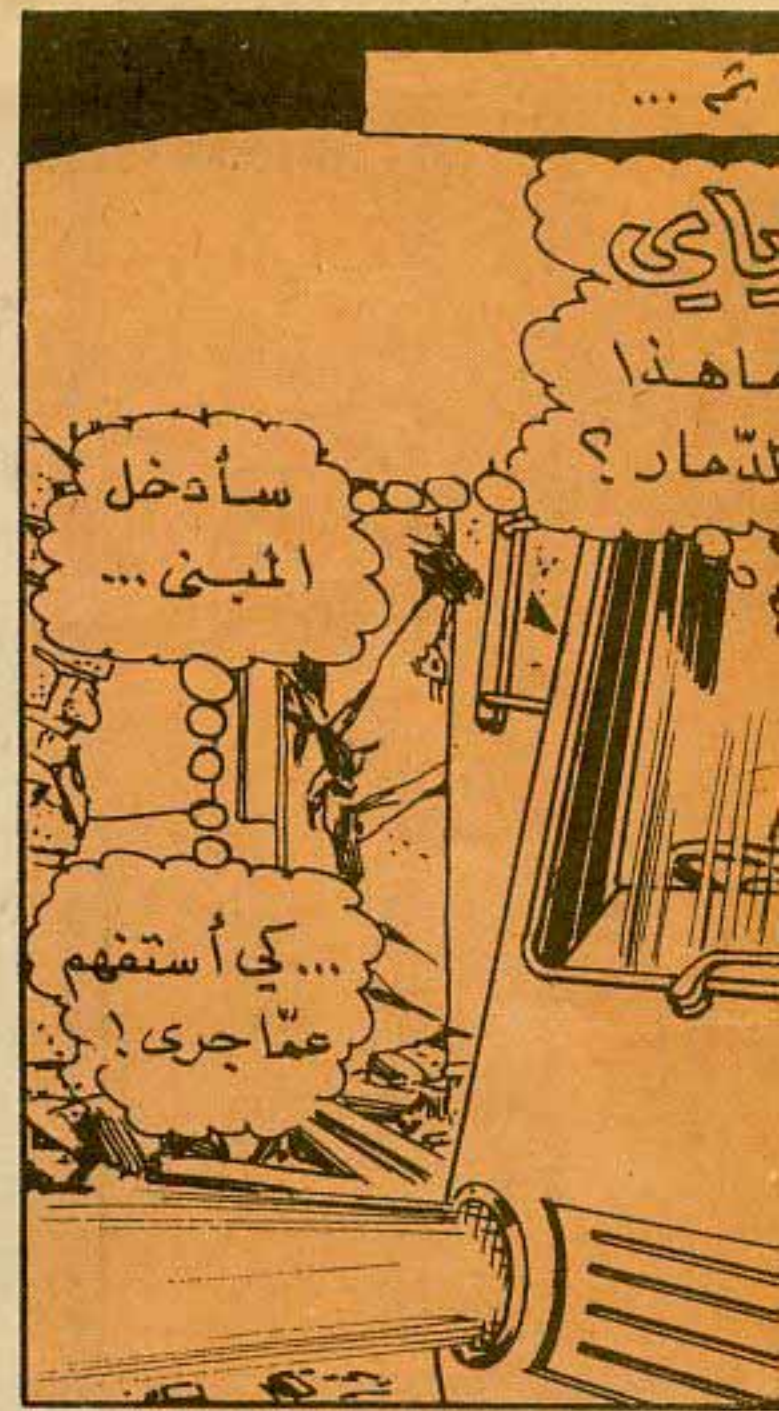 ثم ...
ياي
ماهذا
لدّمار ؟
سأدخل
المبنى ...
... كي أستفهم
عمّا جرى !